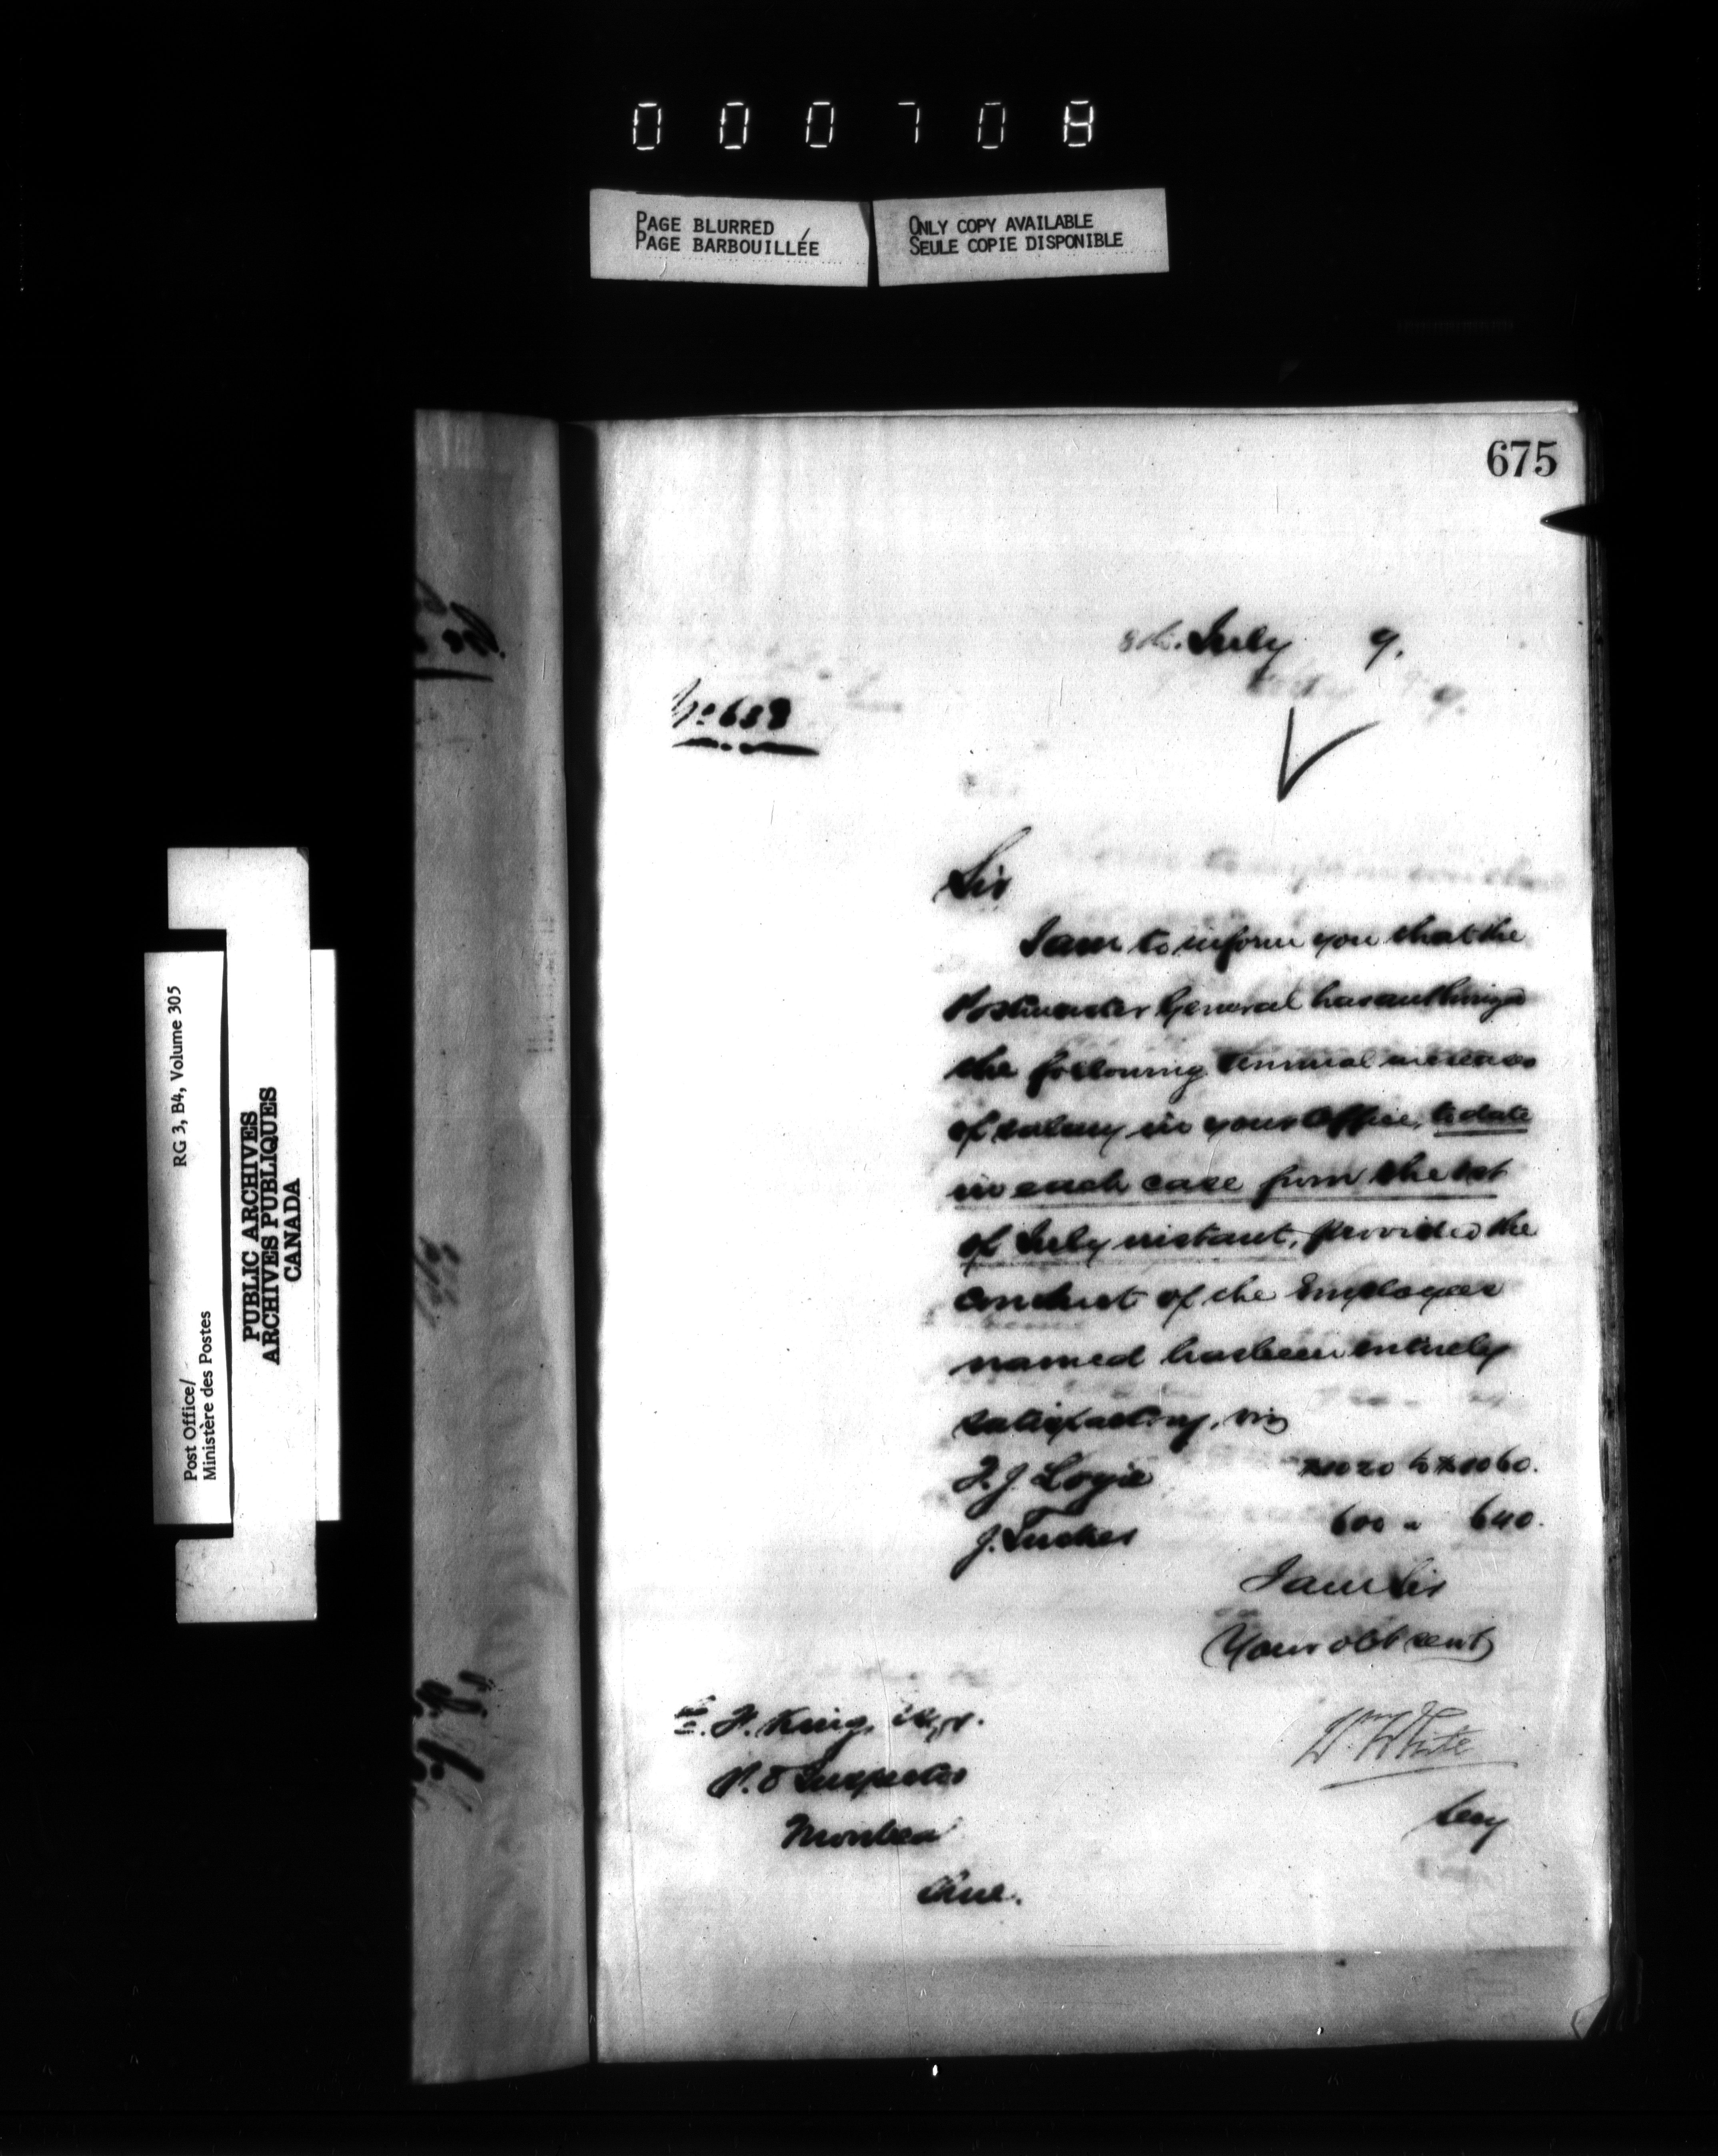 000708
PAGE BLURRED
PAGE BARBOUILLÉE
ONLY COPY AVAILABLE
SEULE COPIE DISPONIBLE
675
8th. July 9.
No 638
Sir
I am to inform you that the
Postmaster General has authorized
the following annual increases
of salary in your Office, to date
in each case from the 1st
of July instant, provided the
conduct of the Employees
named has been entirely
satisfactory, viz
J. Logie $1020 to $1060.
J. Tucker 600 " 640.
I am Sir
Your obt servt
W. King, Esqr.
P. O Inspector
Montreal
Que.
Wm White
Secy
Post Office/
Ministère des Postes
RG 3, B4, Volume 305
PUBLIC ARCHIVES
ARCHIVES PUBLIQUES
CANADA